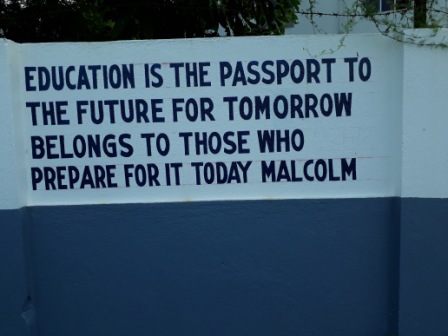 EDUCATION IS THE PASSPORT TO
THE FUTURE FOR TOMORROW
BELONGS TO THOSE WHO
PREPARE FOR IT TODAY MALCOLM